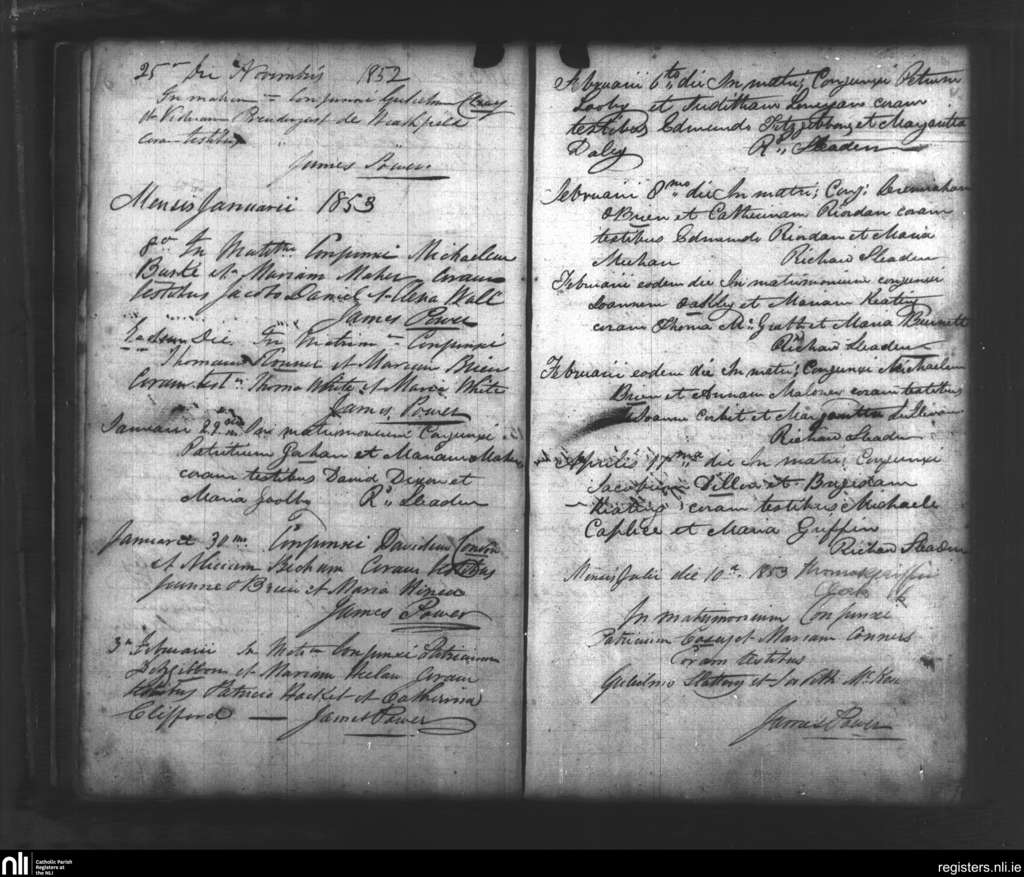 25 Die Novembris 1852
In matrim Conjunxi Gulielmum Cleary
et Viduam Prendergast de Heathfield
coram testibus
James Power
Mensis Januarii 1853
8o In Matri Conjunxi Michaelem
Burke et Mariam Maher Coram
testibus Jacobo Daniel et Elena Wall
James Power
Eadem Die In Matrim Conjunxi
Thomam et Mariam Brien
Coram test Thoma White et Maria White
James Power
Januarii 22 In matrimonium Conjunxi
Patritium Gahan et Mariam Maher
coram testibus David Dixon et
Maria R Sladen
Januarii 30 Conjunxi Davidem Condon
et Coram testibus
Joanne O Brien et Maria
James Power
3a Februarii In Matri Conjunxi Patricium
Fitzgibbon et Mariam Coram
testibus Patricio Hacket et Catherina
Clifford — James Power
Februarii 6to die In matri; Conjunxi Petrum
Looby et Juditham Lonergan coram
testibus Edmundo Fitzgibbon et Margarita
Daly R Sladen
Februarii 8mo die In matri; Conj: Jeremiham
OBrien et Catherinam Riordan coram
testibus Edmundo Riordan et Maria
Mehan Richard Sladen
Februarii eodem die In matrimonium conjunxi
Joannem et Mariam Keating
coram Thoma McGrath et Maria Burnett
Richard Sladen
Februarii eodem die In matri; Conjunxi Michaelem
Brien et Annam Maloney coram testibus
Joanne Corbit et Margarita Sullivan
Richard Sladen
Aprilis die In matri; Conjunxi
Jacobum Dillon et Brigidam
Keating coram testibus Michaele
Caplice et Maria Griffin
Richard Sladen
Mensis Julii die 10a 1853 Thomas Griffin
In matrimonium Conjunxi
Patricium Casey et Mariam Conners
Coram testibus
Gulielmo Slattery et Judith
James Power
nli
Catholic Parish
Registers at
the NLI
registers.nli.ie